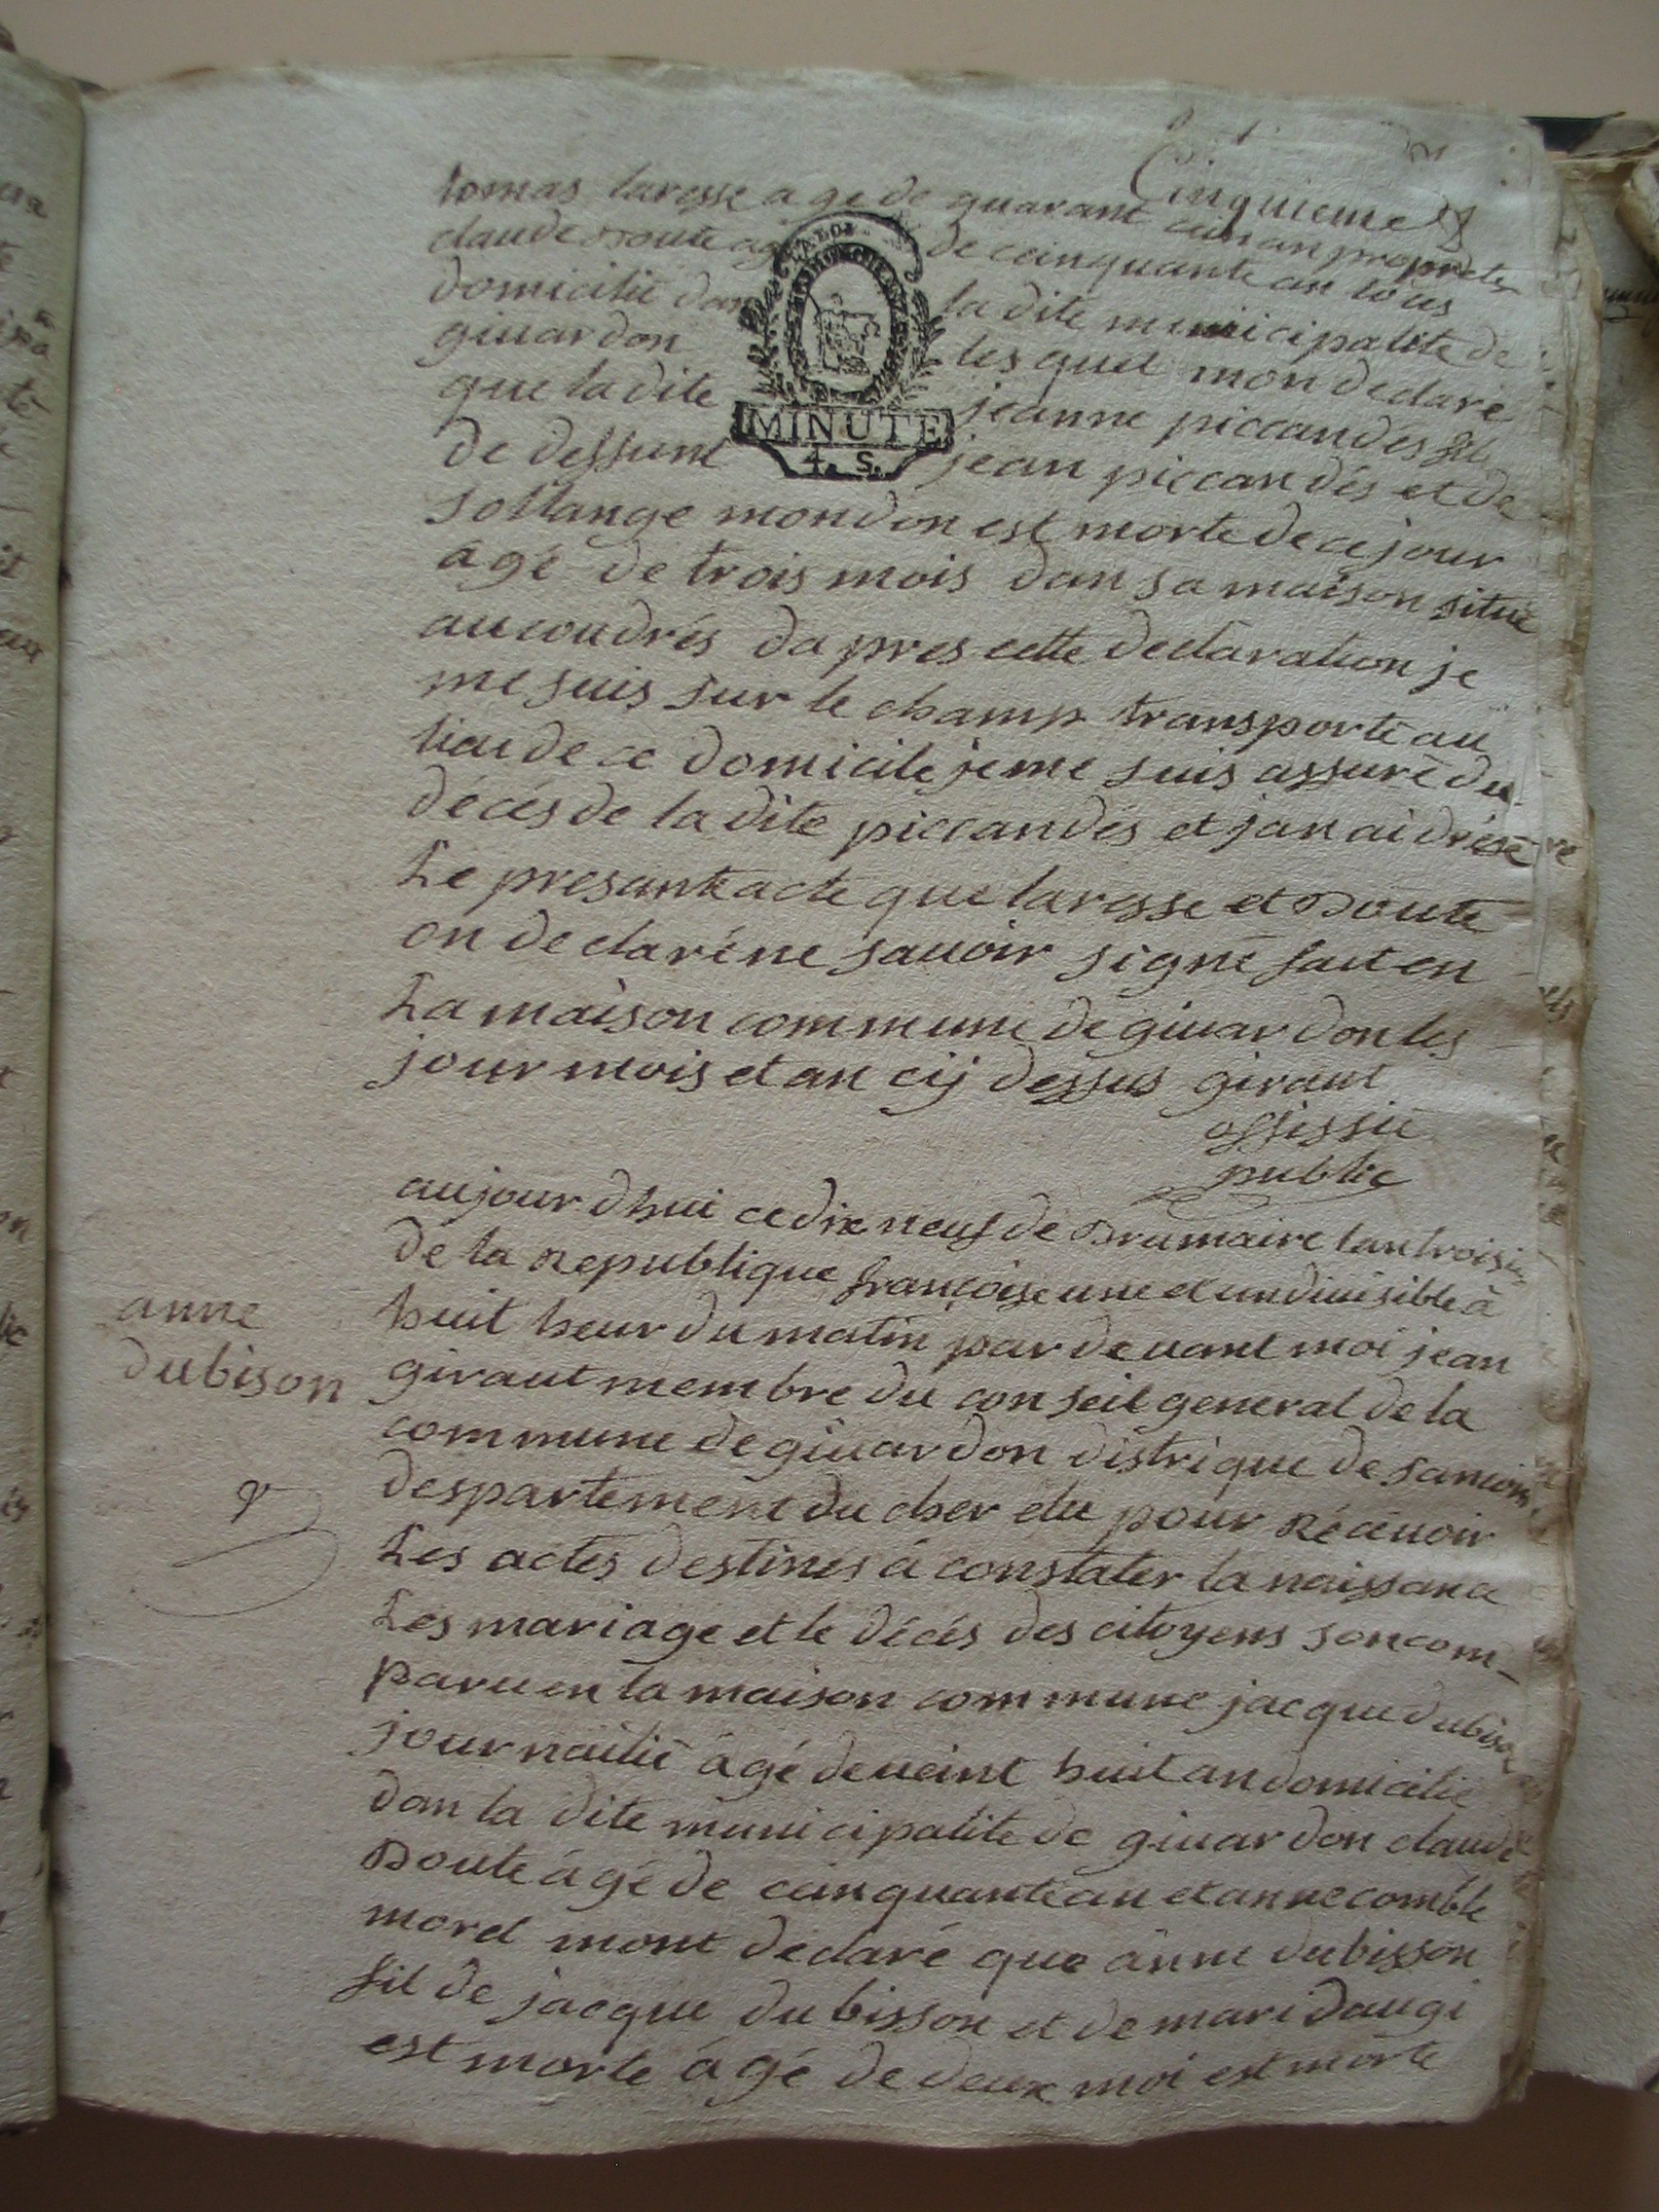 Cinquieme
tomas laresse a ge de quarant cin an propriete
claude Doute agé de cinquante an tous
domicilié dan la dite municipalité de
giuardon les quel mon declaré
que la dite jeanne piccandes fil
de deffunt jean piccandés et de
sollange mondon est morte de ce jour
agé de trois mois dan sa maison situé
au coudrés da pres cette declaration je
me suis sur le champ transporté au
lieu de ce domicile je me suis assuré du
décés de la dite piccandés et jan ai dresé
Le presant acte que laresse et Doute
on declaré ne sauoir signé fait en
La maison commune de giuardon les
jour mois et an cij dessus giraut
offissié
public
MINUTE
4. S.
aujourdhui ce dix neuf de Brumaire lan troisie
de la Republique francoise une et undiuisible à
huit heur du matin par deuant moi jean
giraut membre du conseil general de la
commune de giuardon distrique de sancoin
despartement du cher elu pour Réceuoir
Les actes destinés à constater la naissance
Les mariage et le décés des citoyens son com-
paru en la maison commune jacque dubison
journailié âgé de ueint huit an domicilié
dan la dite municipalite de giuardon claude
Doute âgé de cinquante an et anne comble
morel mont declaré que anne dubisson
fil de jacque dubisson et de mari daugi
est morte âgé de deux moi est morte
anne
dubison